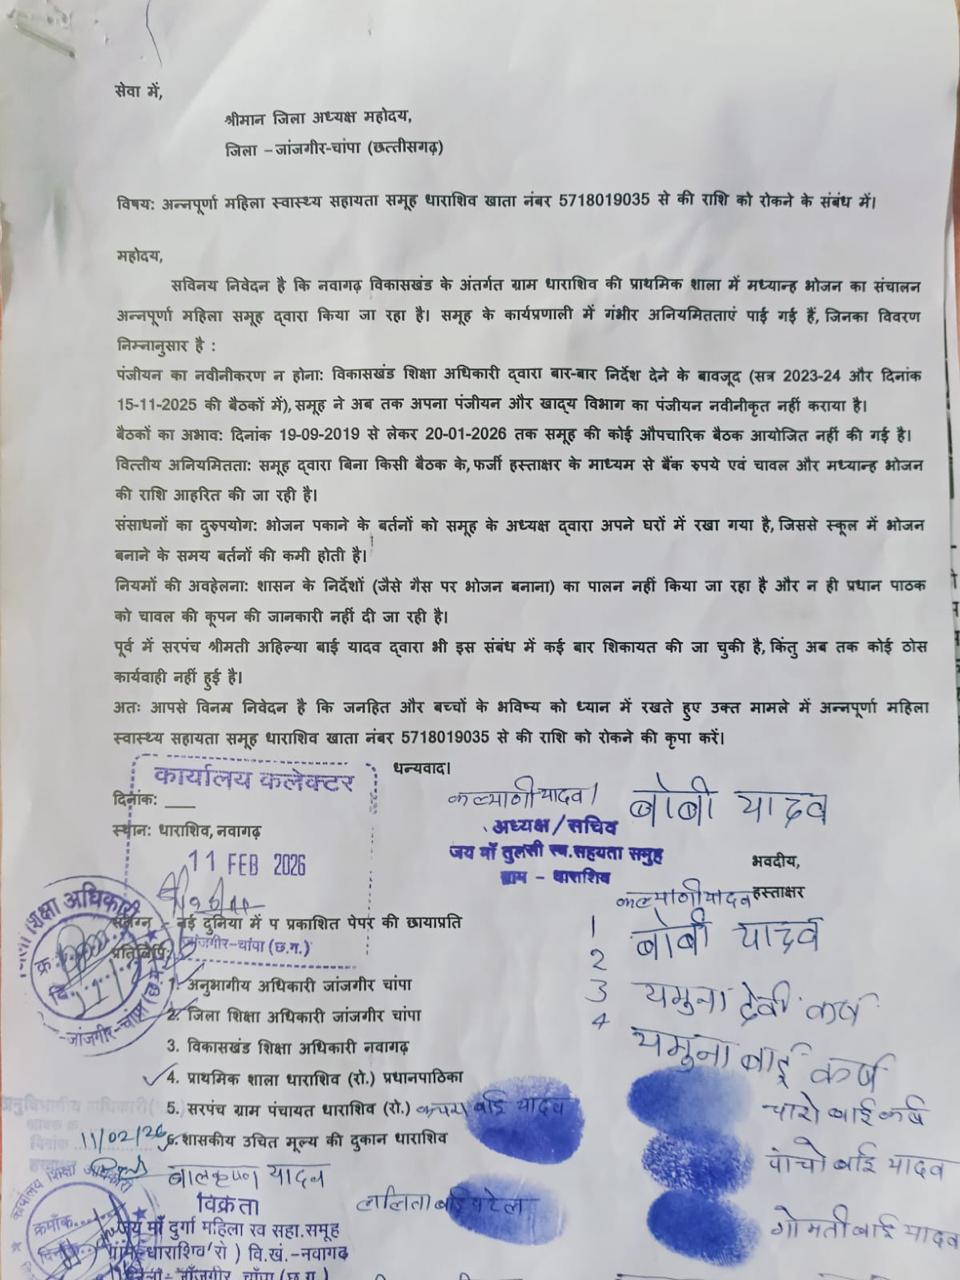 सेवा में,
श्रीमान जिला अध्यक्ष महोदय,
जिला – जांजगीर-चांपा (छत्तीसगढ़)
विषय: अन्नपूर्णा महिला स्वास्थ्य सहायता समूह धाराशिव खाता नंबर 5718019035 से की राशि को रोकने के संबंध में।
महोदय,
सविनय निवेदन है कि नवागढ़ विकासखंड के अंतर्गत ग्राम धाराशिव की प्राथमिक शाला में मध्यान्ह भोजन का संचालन
अन्नपूर्णा महिला समूह द्वारा किया जा रहा है। समूह के कार्यप्रणाली में गंभीर अनियमितताएं पाई गई हैं, जिनका विवरण
निम्नानुसार है :
पंजीयन का नवीनीकरण न होना: विकासखंड शिक्षा अधिकारी द्वारा बार-बार निर्देश देने के बावजूद (सत्र 2023-24 और दिनांक
15-11-2025 की बैठकों में), समूह ने अब तक अपना पंजीयन और खाद्य विभाग का पंजीयन नवीनीकृत नहीं कराया है।
बैठकों का अभाव: दिनांक 19-09-2019 से लेकर 20-01-2026 तक समूह की कोई औपचारिक बैठक आयोजित नहीं की गई है।
वित्तीय अनियमितता: समूह द्वारा बिना किसी बैठक के, फर्जी हस्ताक्षर के माध्यम से बैंक रुपये एवं चावल और मध्यान्ह भोजन
की राशि आहरित की जा रही है।
संसाधनों का दुरुपयोग: भोजन पकाने के बर्तनों को समूह के अध्यक्ष द्वारा अपने घरों में रखा गया है, जिससे स्कूल में भोजन
बनाने के समय बर्तनों की कमी होती है।
नियमों की अवहेलना: शासन के निर्देशों (जैसे गैस पर भोजन बनाना) का पालन नहीं किया जा रहा है और न ही प्रधान पाठक
को चावल की कूपन की जानकारी नहीं दी जा रही है।
पूर्व में सरपंच श्रीमती अहिल्या बाई यादव द्वारा भी इस संबंध में कई बार शिकायत की जा चुकी है, किंतु अब तक कोई ठोस
कार्यवाही नहीं हुई है।
अतः आपसे विनम्र निवेदन है कि जनहित और बच्चों के भविष्य को ध्यान में रखते हुए उक्त मामले में अन्नपूर्णा महिला
स्वास्थ्य सहायता समूह धाराशिव खाता नंबर 5718019035 से की राशि को रोकने की कृपा करें।
धन्यवाद।
कार्यालय कलेक्टर
दिनांक: ___
कल्याणी यादव
बोबी यादव
अध्यक्ष/सचिव
स्थान: धाराशिव, नवागढ़
जय माँ तुलसी स्व.सहयता समुह
ग्राम - धाराशिव
भवदीय,
11 FEB 2026
हस्ताक्षर
1 कल्याणी यादव
शिक्षा अधिकारी
संलग्न - नई दुनिया में प प्रकाशित पेपर की छायाप्रति
2 बोबी यादव
प्रतिलिपि:
जांजगीर-चांपा (छ.ग.)
1. अनुभागीय अधिकारी जांजगीर चांपा
3 यमुना देवी कर्ष
2. जिला शिक्षा अधिकारी जांजगीर चांपा
4 यमुना बाई कर्ष
जांजगीर-चांपा (छ.ग.)
3. विकासखंड शिक्षा अधिकारी नवागढ़
4. प्राथमिक शाला धाराशिव (रो.) प्रधानपाठिका
5. सरपंच ग्राम पंचायत धाराशिव (रो.)
बाई यादव
चारो बाई कर्ष
दिनांक 11/02/26
6. शासकीय उचित मूल्य की दुकान धाराशिव
पांचो बाई यादव
बालकृष्ण यादव
विक्रेता
ललिता बाई पटेल
जय माँ दुर्गा महिला स्व सहा. समूह
गोमती बाई यादव
क्रमाँक
ग्राम-धाराशिव (रो) वि.खं.-नवागढ़
जिला- जाँजगीर चांपा (छ.ग.)